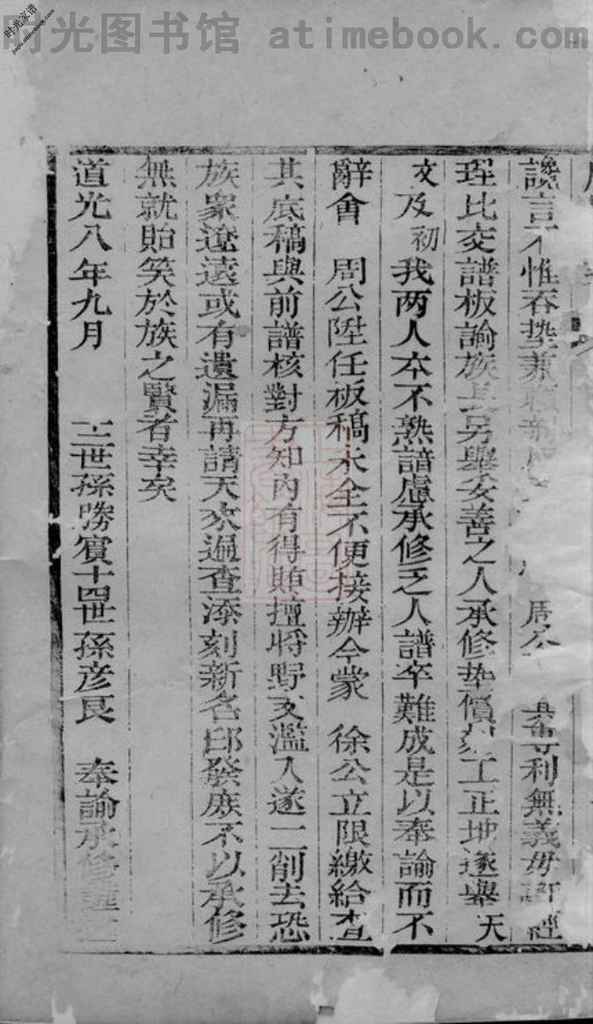 时光图书馆 - atimebook.com
时光家谱
讒言不惟吞墊兼 周公 專利無義毋 經
理比交譜板諭族長另舉妥善之人承修墊價 工正地遂舉天
文及初我两人本不熟諳慮承修乏人譜卒難成是以奉諭而不
辭會 周公陞任板稿未全不便接辦今蒙 徐公立限繳給查
其底稿與前譜核對方知內有得賄擅將野支濫入遂一一削去恐
族衆遼遠或有遺漏再請天來遍查添刻新名即發庶不以承修
無就貽笑於族之賢者幸矣
道光八年九月 世孫勝賓十四世孫彦良 奉諭承修